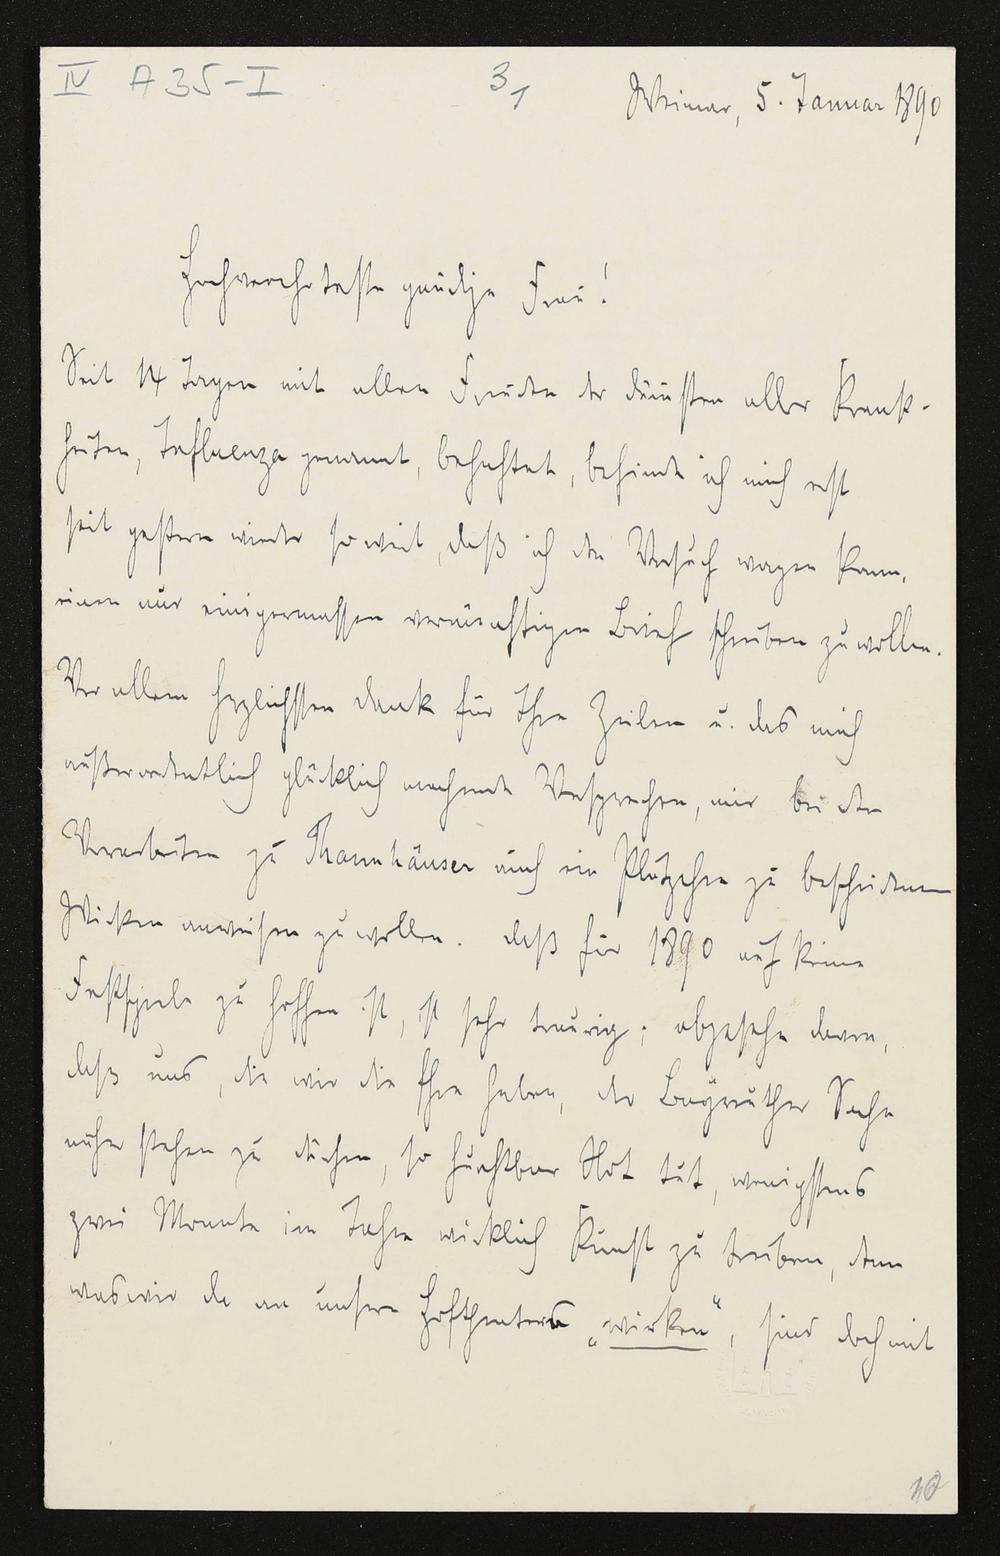 IV A 35-I
3,
Weimar, 5. Januar 1890
Hochverehrteste gnädige Frau!
Seit 14 Tagen mit allen Freuden der dümmsten aller Krank-
heiten, Influenza genannt, behaftet, befinde ich mich erst
seit gestern wieder so weit, daß ich den Versuch wagen kann,
einen nur einigermassen vernünftigen Brief schreiben zu wollen.
Vor allem herzlichsten Dank für Ihre Zeilen u. das mich
außerordentlich glücklich machende Versprechen, mir bei den
Vorarbeiten zu Thannhäuser auch ein Plätzchen zu bescheidenem
Wirken anweisen zu wollen. Daß für 1890 auf keine
Festspiele zu hoffen ist, ist sehr traurig; abgesehen davon,
daß uns, die wir die Ehre haben, der Bayreuther Sache
näher stehen zu dürfen, so furchtbar Not tut, wenigstens
zwei Monate im Jahre wirklich Kunst zu treiben, denn
was wir da an unsern Hoftheatern „wirken", sind doch mit